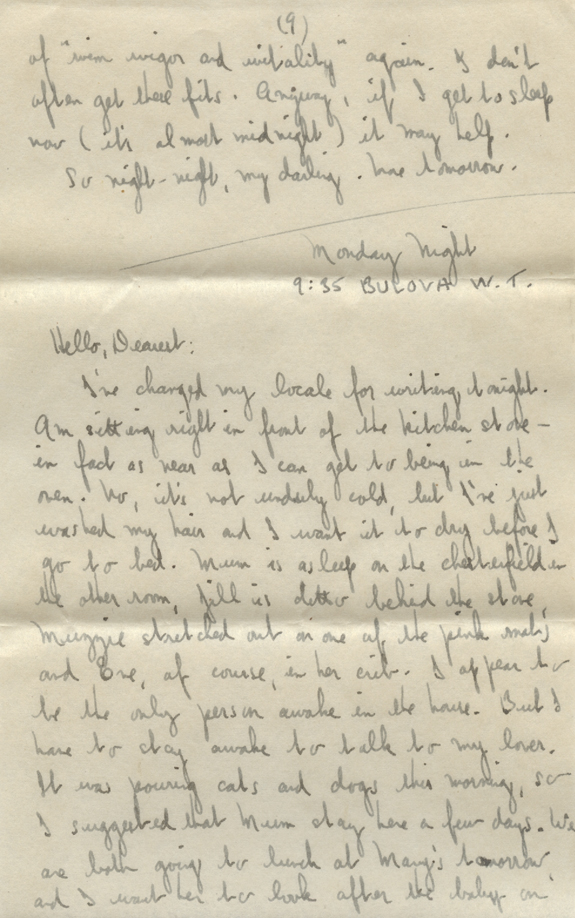 (9)
of "vim vigor and vitality" again. I don't
often get these fits. Anyway, if I get to sleep
now (it's almost midnight) it may help.
So night-night, my darling. More tomorrow.
Monday Night
9:35 BULOVA W.T.
Hello, Dearest:
I've changed my locale for writing tonight.
Am sitting right in front of the kitchen stove –
in fact as near as I can get to being in the
oven. No, it's not unduly cold, but I've just
washed my hair and I want it to dry before I
go to bed. Mum is asleep on the chesterfield in
the other room, Jill is ditto behind the stove,
Muzzie stretched out on one of the pink mats
and Eve, of course, in her crib. I appear to
be the only person awake in the house. But I
have to stay awake to talk to my lover.
It was pouring cats and dogs this morning, so
I suggested that Mum stay here a few days. We
are both going to lunch at Mary's tomorrow,
and I want her to look after the baby on